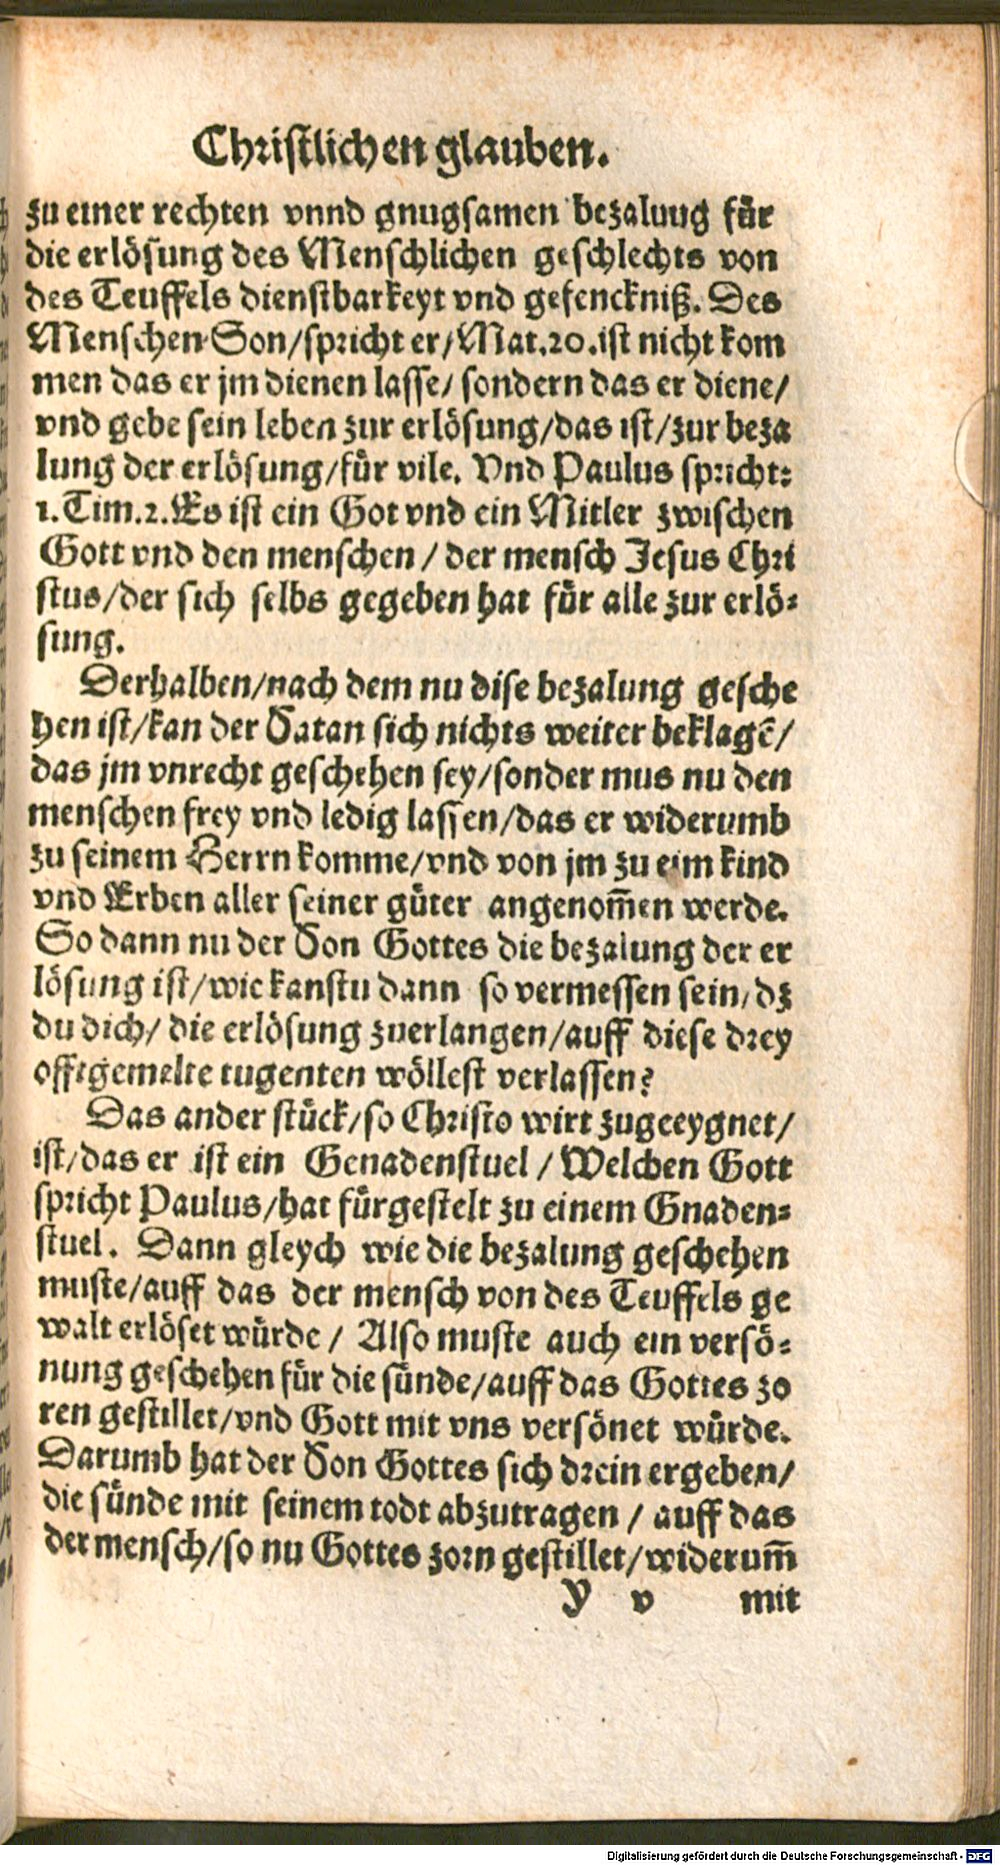 Christlichen glauben.
zu einer rechten vnnd gnugsamen bezalung für
die erlösung des Menschlichen geschlechts von
des Teuffels dienstbarkeyt vnd gefenckniß. Des
Menschen Son/spricht er/Mat.20.ist nicht kom
men das er jm dienen lasse/ sondern das er diene/
vnd gebe sein leben zur erlösung/das ist/zur beza
lung der erlösung/für vile. Vnd Paulus spricht:
1.Tim.2.Es ist ein Got vnd ein Mitler zwischen
Gott vnd den menschen / der mensch Jesus Chri
stus/der sich selbs gegeben hat für alle zur erlö-
sung.
Derhalben/nach dem nu dise bezalung gesche
hen ist/kan der Satan sich nichts weiter beklagẽ/
das jm vnrecht geschehen sey/sonder mus nu den
menschen frey vnd ledig lassen/das er widerumb
zu seinem Herrn komme/vnd von jm zu eim kind
vnd Erben aller seiner güter angenom̃en werde.
So dann nu der Son Gottes die bezalung der er
lösung ist/wie kanstu dann so vermessen sein/dz
du dich/ die erlösung zuerlangen/auff diese drey
offtgemelte tugenten wöllest verlassen?
Das ander stück/so Christo wirt zugeeygnet/
ist/das er ist ein Genadenstuel / Welchen Gott
spricht Paulus/hat fürgestelt zu einem Gnaden-
stuel. Dann gleych wie die bezalung geschehen
muste/auff das der mensch von des Teuffels ge
walt erlöset würde / Also muste auch ein versö-
nung geschehen für die sünde/auff das Gottes zo
ren gestillet/vnd Gott mit vns versönet würde.
Darumb hat der Son Gottes sich drein ergeben/
die sünde mit seinem todt abzutragen / auff das
der mensch/so nu Gottes zorn gestillet/widerum̃
Y v mit
Digitalisierung gefördert durch die Deutsche Forschungsgemeinschaft - DFG